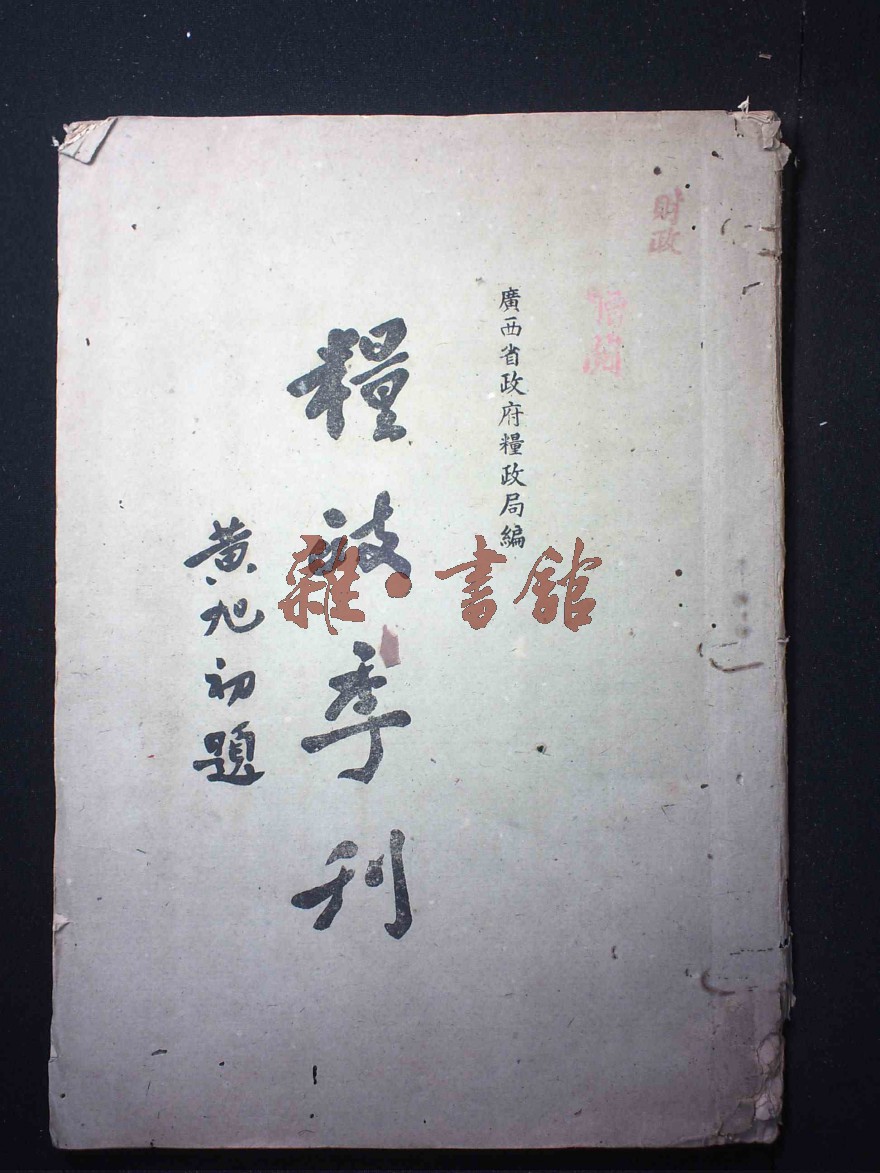 財政
廣西省政府糧政局編
糧政季刊
黃旭初題
雜·書館